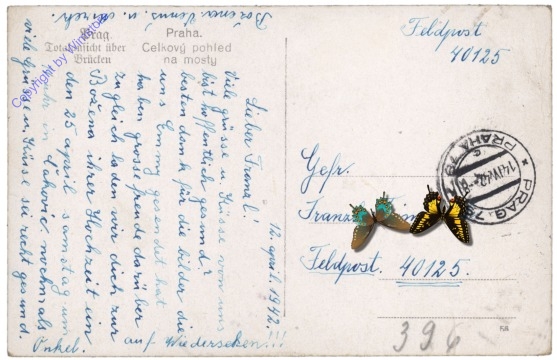 Prag.
Totalansicht über
Brücken
Praha.
Celkový pohled
na mosty
Copyright by
12. april. 1942.
Lieber Franzl!
Viele Grüsse u. Küsse von uns
bist hoffentlich gesund?
besten dank für die bilder die
uns Emmy gesendet hat
haben grosse freude darüber
zugleich laden wir dich zur
Božena ihrer Hochzeit ein
den 25 april samstag um
uhr in nochmals
viele Grüsse u. Küsse sei recht gesund.
Onkel.
auf Wiedersehen!!!
Božena u.
Feldpost
40125
Gefr.
Franz
Feldpost. 40125.
PRAG 79
PRAHA 79
396